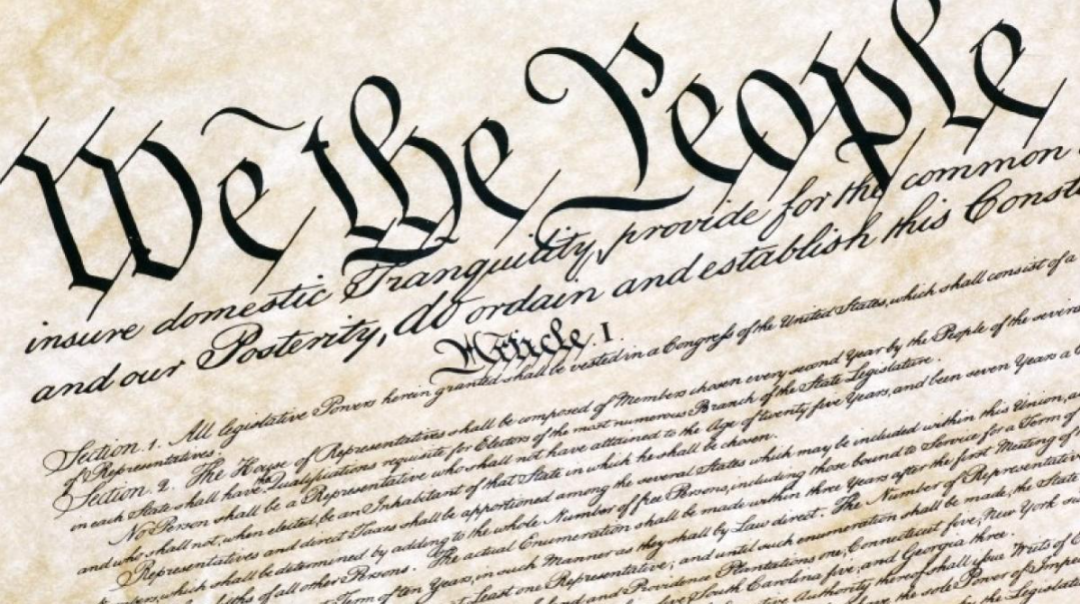 We the People
insure domestic Tranquility, provide for the common
and our Posterity, do ordain and establish this Const
Article. I.
Section. 1. All legislative Powers herein granted shall be vested in a Congress of the United States, which shall consist of a
of Representatives.
Section. 2. The House of Representatives shall be composed of Members chosen every second Year by the People of the several
in each State shall have the Qualifications requisite for Electors of the most numerous Branch of the State Legislature.
No Person shall be a Representative who shall not have attained to the Age of twenty five Years, and been seven Years a
and who shall not, when elected, be an Inhabitant of that State in which he shall be chosen.
Representatives and direct Taxes shall be apportioned among the several States which may be included within this Union, a
bers, which shall be determined by adding to the whole Number of free Persons, including those bound to Service for a Term of
fths of all other Persons. The actual Enumeration shall be made within three Years after the first Meeting of
Term of ten Years, in such Manner as they shall by Law direct. The Number of Representative
at Least one Representative; and until such enumeration shall be made, the State
and Providence Plantations one, Connecticut five, New York
five, South Carolina five, and Georgia three.
Authority thereof shall issue Writs of
have the sole Power of Impe